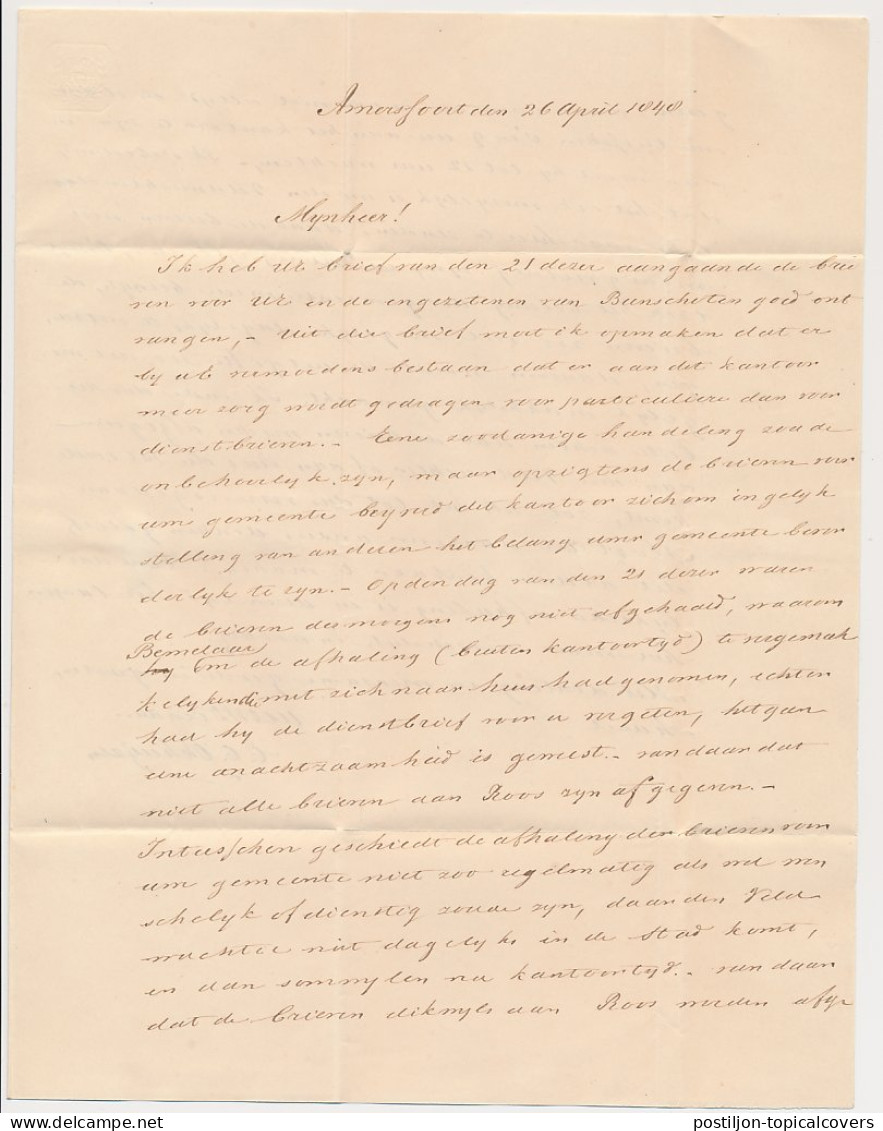 Amersfoort den 26 April 1848
Mynheer!
Ik heb UE brief van den 21 dezer aangaande de brie
ven voor UE en de ingezetenen van Bunschoten goed ont
vangen, - Uit die brief moet ik opmaken dat er
by UE vermoedens bestaan dat er aan dit kantoor
meer zorg wordt gedragen voor particuliere dan voor
dienstbrieven. - Eene zoodanige handeling zoude
onbehoorlyk zyn, maar opzigtens de brieven voor
uwe gemeente beyverd dit kantoor zich om in gelyk
stelling van anderen het belang uwer gemeente bevor
derlyk te zyn. - Op den dag van den 21 dezer waren
de brieven des morgens nog niet afgehaald, waarom
Bemelaar
hy om de afhaling (buiten kantoortyd) te vergemak
kelyken die met zich naar huis had genomen, echter
had hy de dienstbrief voor u vergeten, hetgeen
eene onachtzaamheid is geweest. - van daar dat
niet alle brieven aan Roos zyn afgegeven. -
Intusschen geschiedt de afhaling der brieven voor
uwe gemeente niet zoo regelmatig als wel wen
schelyk of dienstig zoude zyn, daar den Veld
wachter niet dagelyks in de stad komt,
en dan sommylen na kantoortyd. - van daar
dat de brieven dikwyls aan Roos worden afge
postiljon-topicalcovers